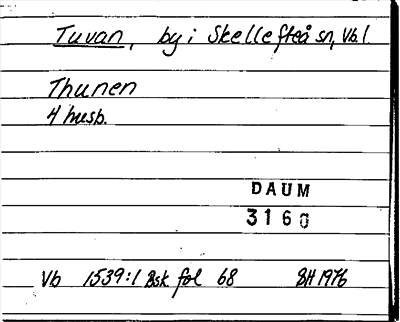 Tuvan, by i Skellefteå sn, Vb. l.
Thunen
4 husb.
DAUM
3160
Vb 1539:1 Bsk fol 68 BH 1976